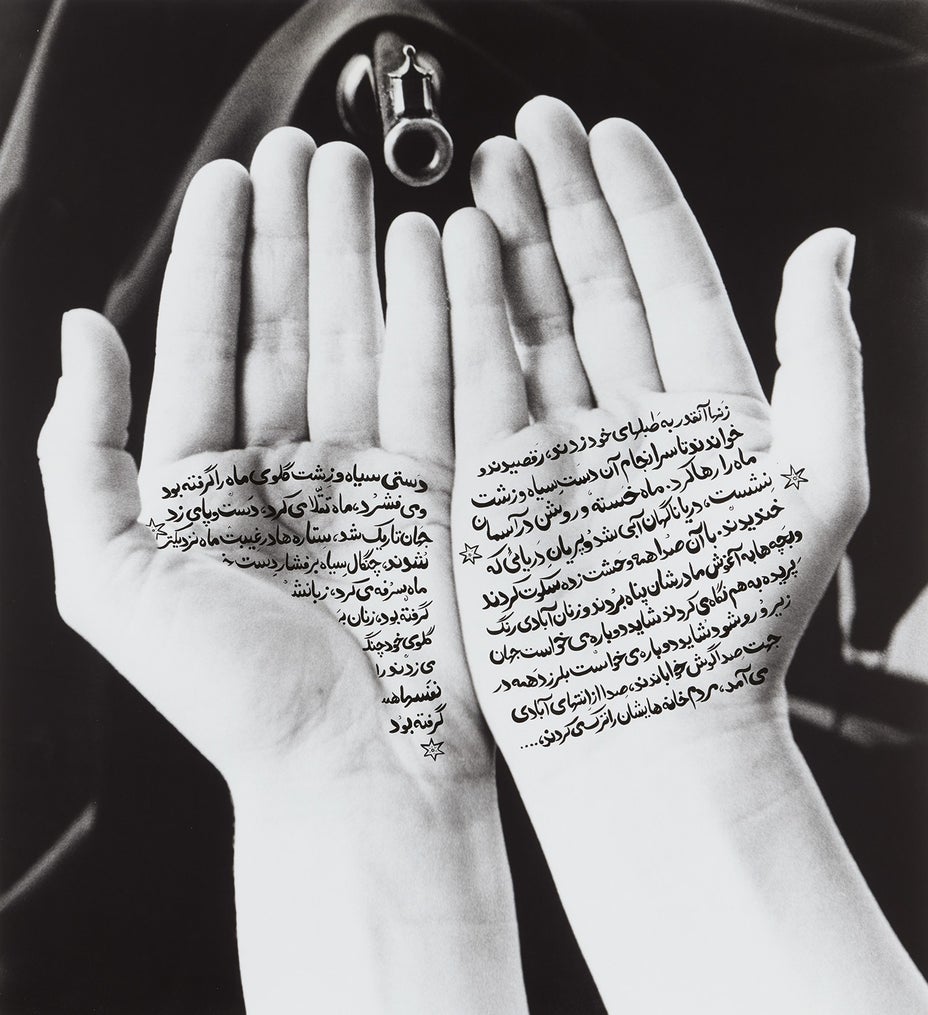 دستی سیاه و زشت گلوی ماه را گرفته بود
و می فشرد، ماه تقلا می کرد، دست و پای زد
جهان تاریک شد، ستاره ها در غیبت ماه نزدیکتر
نشدند، چنگال سیاه بر فشار دست
ماه سرفه می کرد، زبانش
گرفته بود، زنان
گلوی خود چنگ
می زدند
نفسها همه
گرفته بود
زنها آنقدر به طبلهای خود زدند، رقصیدند و
خواندند تا سرانجام آن دست سیاه و زشت
ماه را رها کرد. ماه خسته و روشن در آسمان
نشست، دریا ناگهان آبی شد و پریان دریائی که
خندیدند. با آن صدا همه وحشت زده سکوت کردند
و بچه ها به آغوش مادرشان پناه بردند و زنان آبادی رنگ
پریده به هم نگاه می کردند شاید دوباره می خواست جهان
زیر و رو شود شاید دوباره می خواست بلرزد همه در
جهت صدا گوش خواباندند، صدا از انتهای آبادی
می آمد، مردم خانه هایشان را ترک می کردند،....